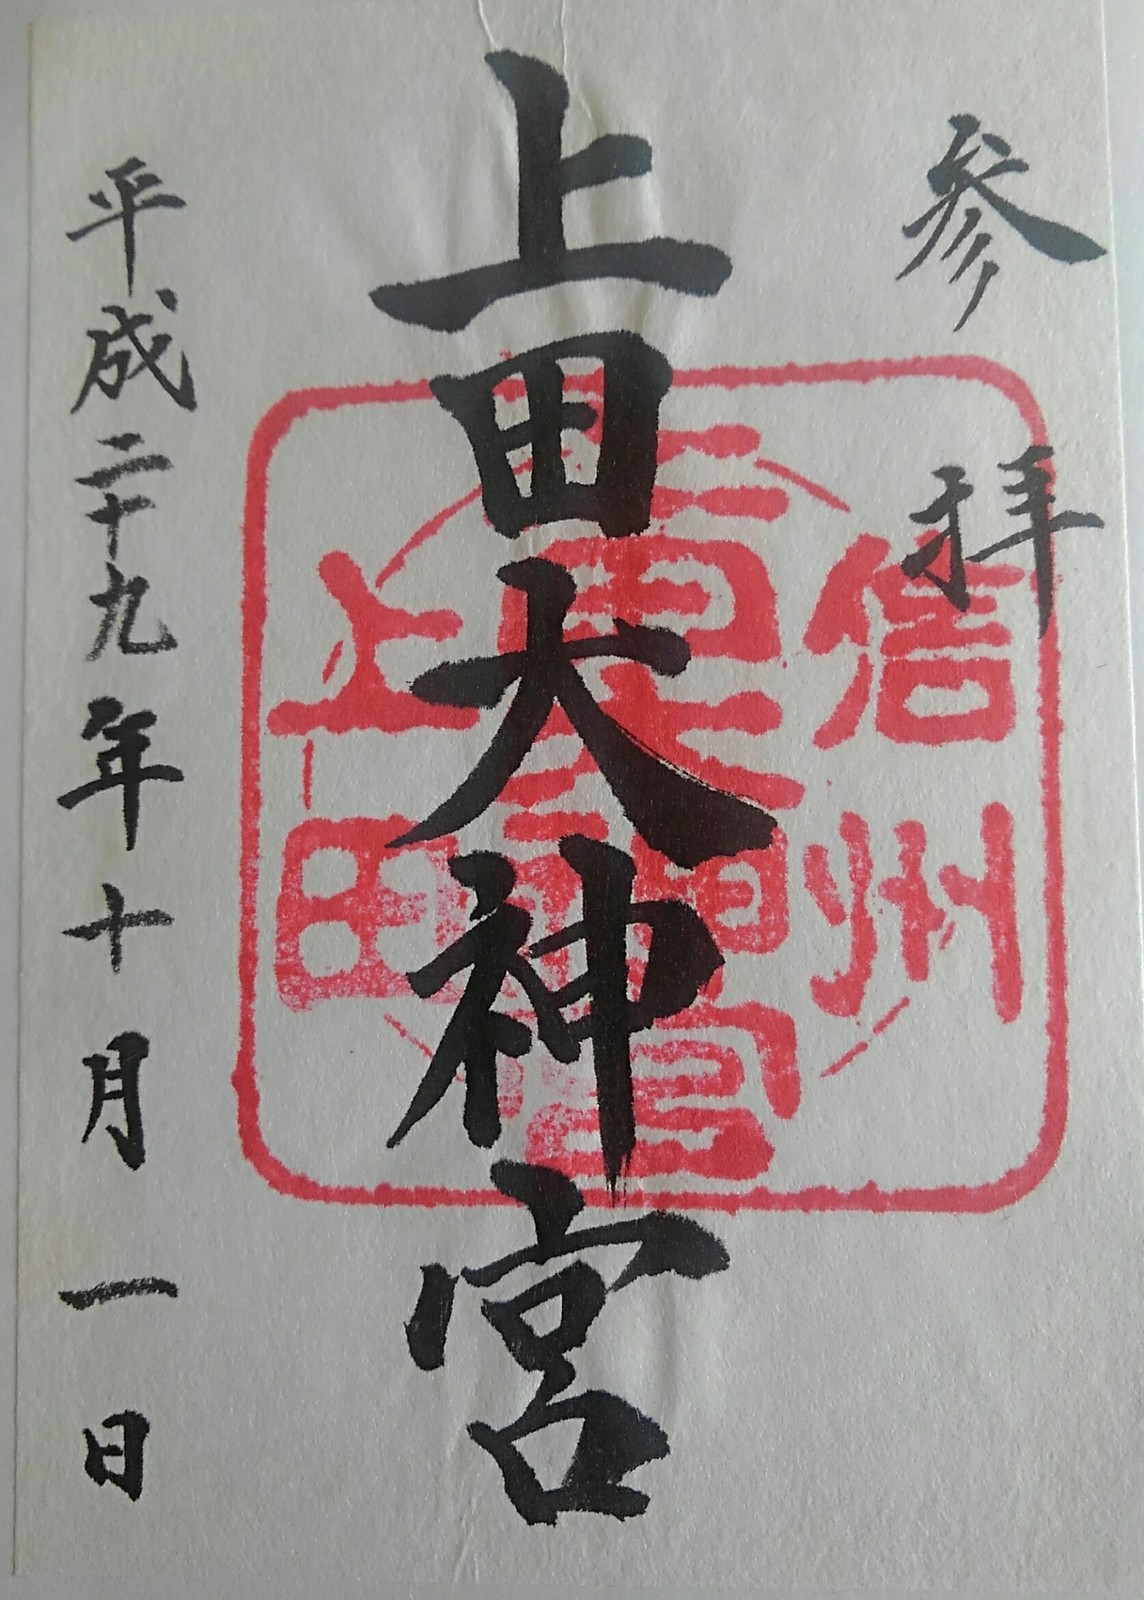 参拝
上田大神宮
信州
上田
平成二十九年十月一日